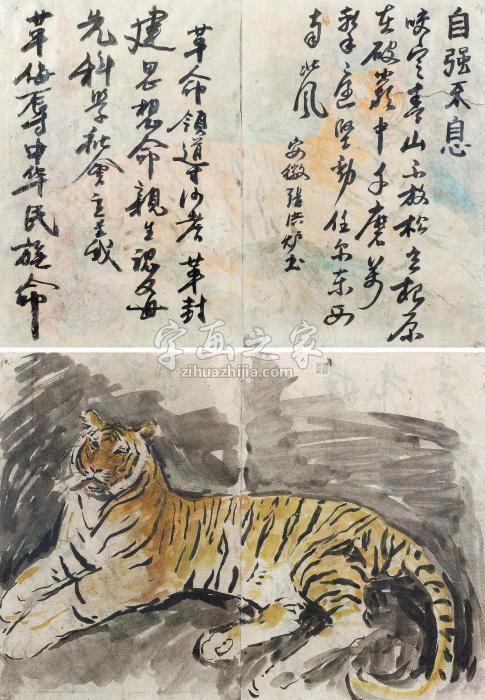 自强不息
咬定青山不放松立根原
在破岩中千磨万
還坚劲任尔东西
南北风
安徽 洪炉书
革命领道 者 革封
建思想命親生認父母
先科学社会主 我
革侮辱中华民族命
字画之家
zihuazhijia.com